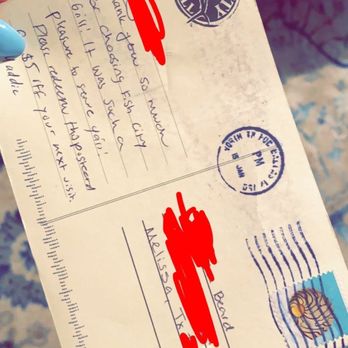 thank you so much
for choosing Fish City
Grill! It was such a
pleasure to serve you!
Please redeem this postcard
for $5 off your next visit.
Maddie
PM
Beard
Melissa, Tx